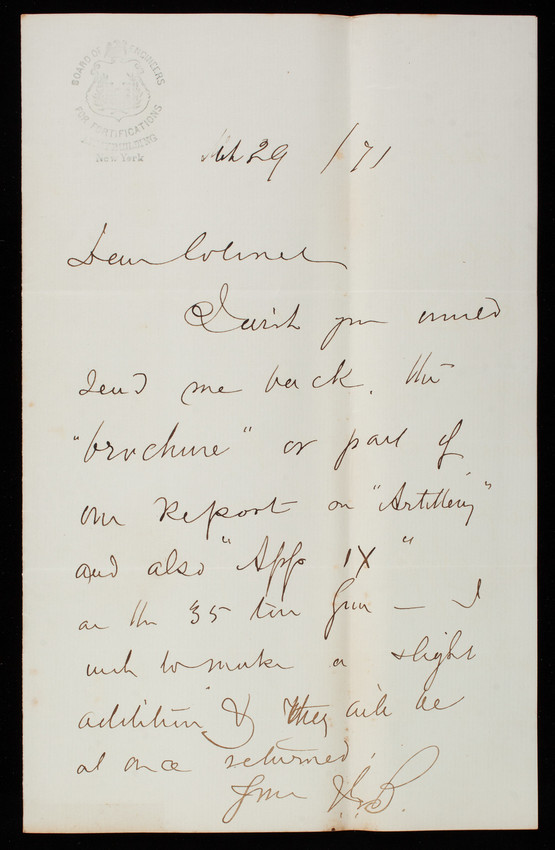 BOARD OF ENGINEERS
FOR FORTIFICATIONS
ARMY BUILDING
New York
Mch 29 /71
Dear Colonel
I wish you would
send me back, the
"brochure" or part of
our Report on "Artillery"
and also "App IX"
on the 35 ton Gun — I
wish to make a slight
addition & they will be
at once returned.
Yours J.G.B.